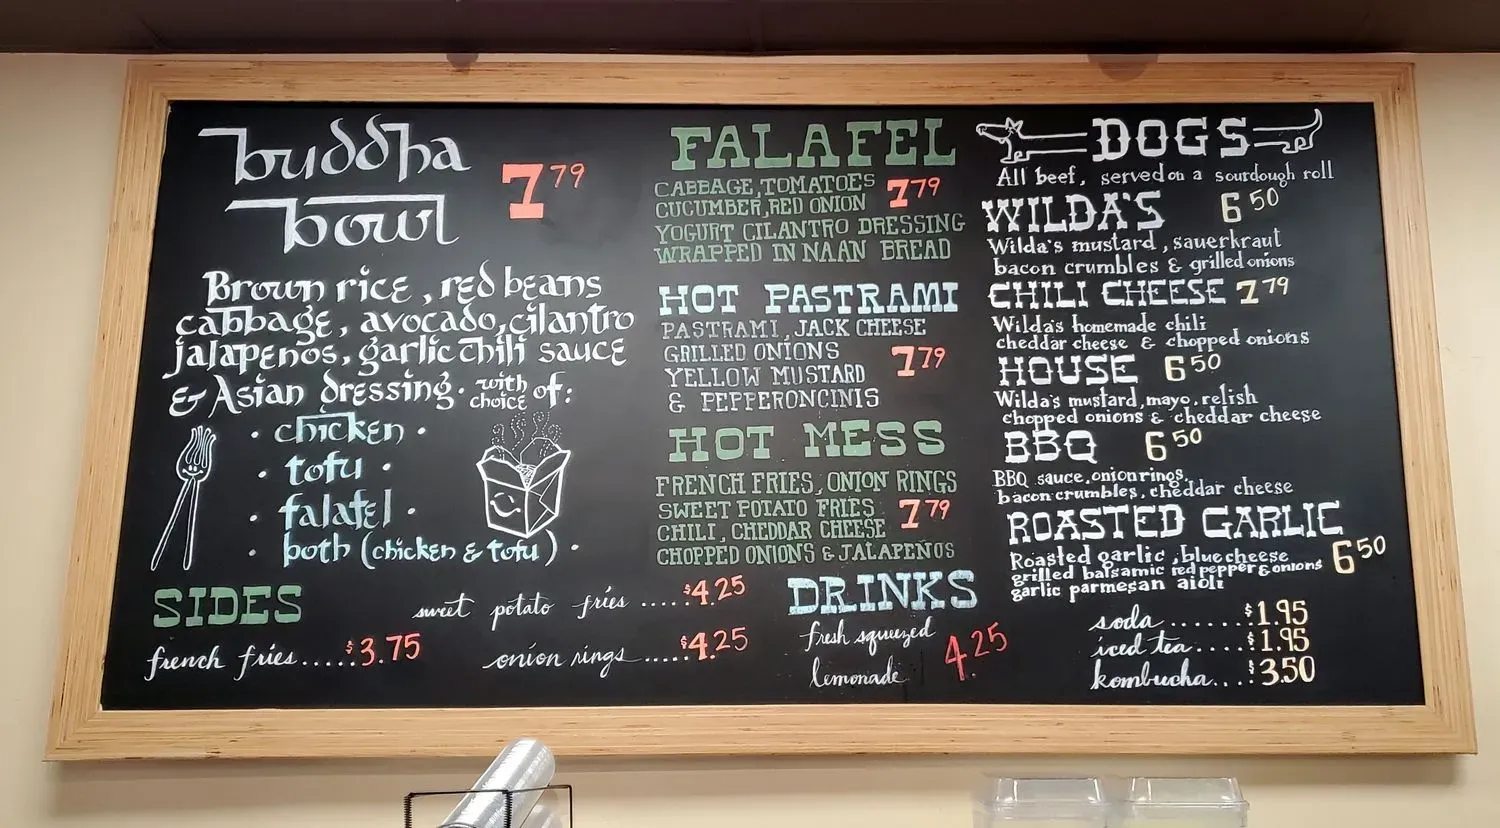 buddha
bowl
7 79
Brown rice, red beans
cabbage, avocado, cilantro
jalapenos, garlic chili sauce
& Asian dressing. with choice of:
• chicken •
• tofu •
• falafel •
• both (chicken & tofu) •
SIDES
french fries.....$3.75
sweet potato fries .....$4.25
onion rings.....$4.25
FALAFEL
CABBAGE, TOMATOES
CUCUMBER, RED ONION
7 79
YOGURT CILANTRO DRESSING
WRAPPED IN NAAN BREAD
HOT PASTRAMI
PASTRAMI, JACK CHEESE
GRILLED ONIONS
7 79
YELLOW MUSTARD
& PEPPERONCINIS
HOT MESS
FRENCH FRIES, ONION RINGS
SWEET POTATO FRIES
7 79
CHILI, CHEDDAR CHEESE
CHOPPED ONIONS & JALAPEÑOS
DRINKS
fresh squeezed
lemonade
4.25
DOGS
All beef, served on a sourdough roll
WILDA'S 6 50
Wilda's mustard, sauerkraut
bacon crumbles & grilled onions
CHILI CHEESE 7 79
Wilda's homemade chili
cheddar cheese & chopped onions
HOUSE 6 50
Wilda's mustard, mayo, relish
chopped onions & cheddar cheese
BBQ 6 50
BBQ sauce, onion rings,
bacon crumbles, cheddar cheese
ROASTED GARLIC
6 50
Roasted garlic, blue cheese
grilled balsamic red pepper & onions
garlic parmesan aioli
soda.......$1.95
iced tea.....$1.95
kombucha...$3.50